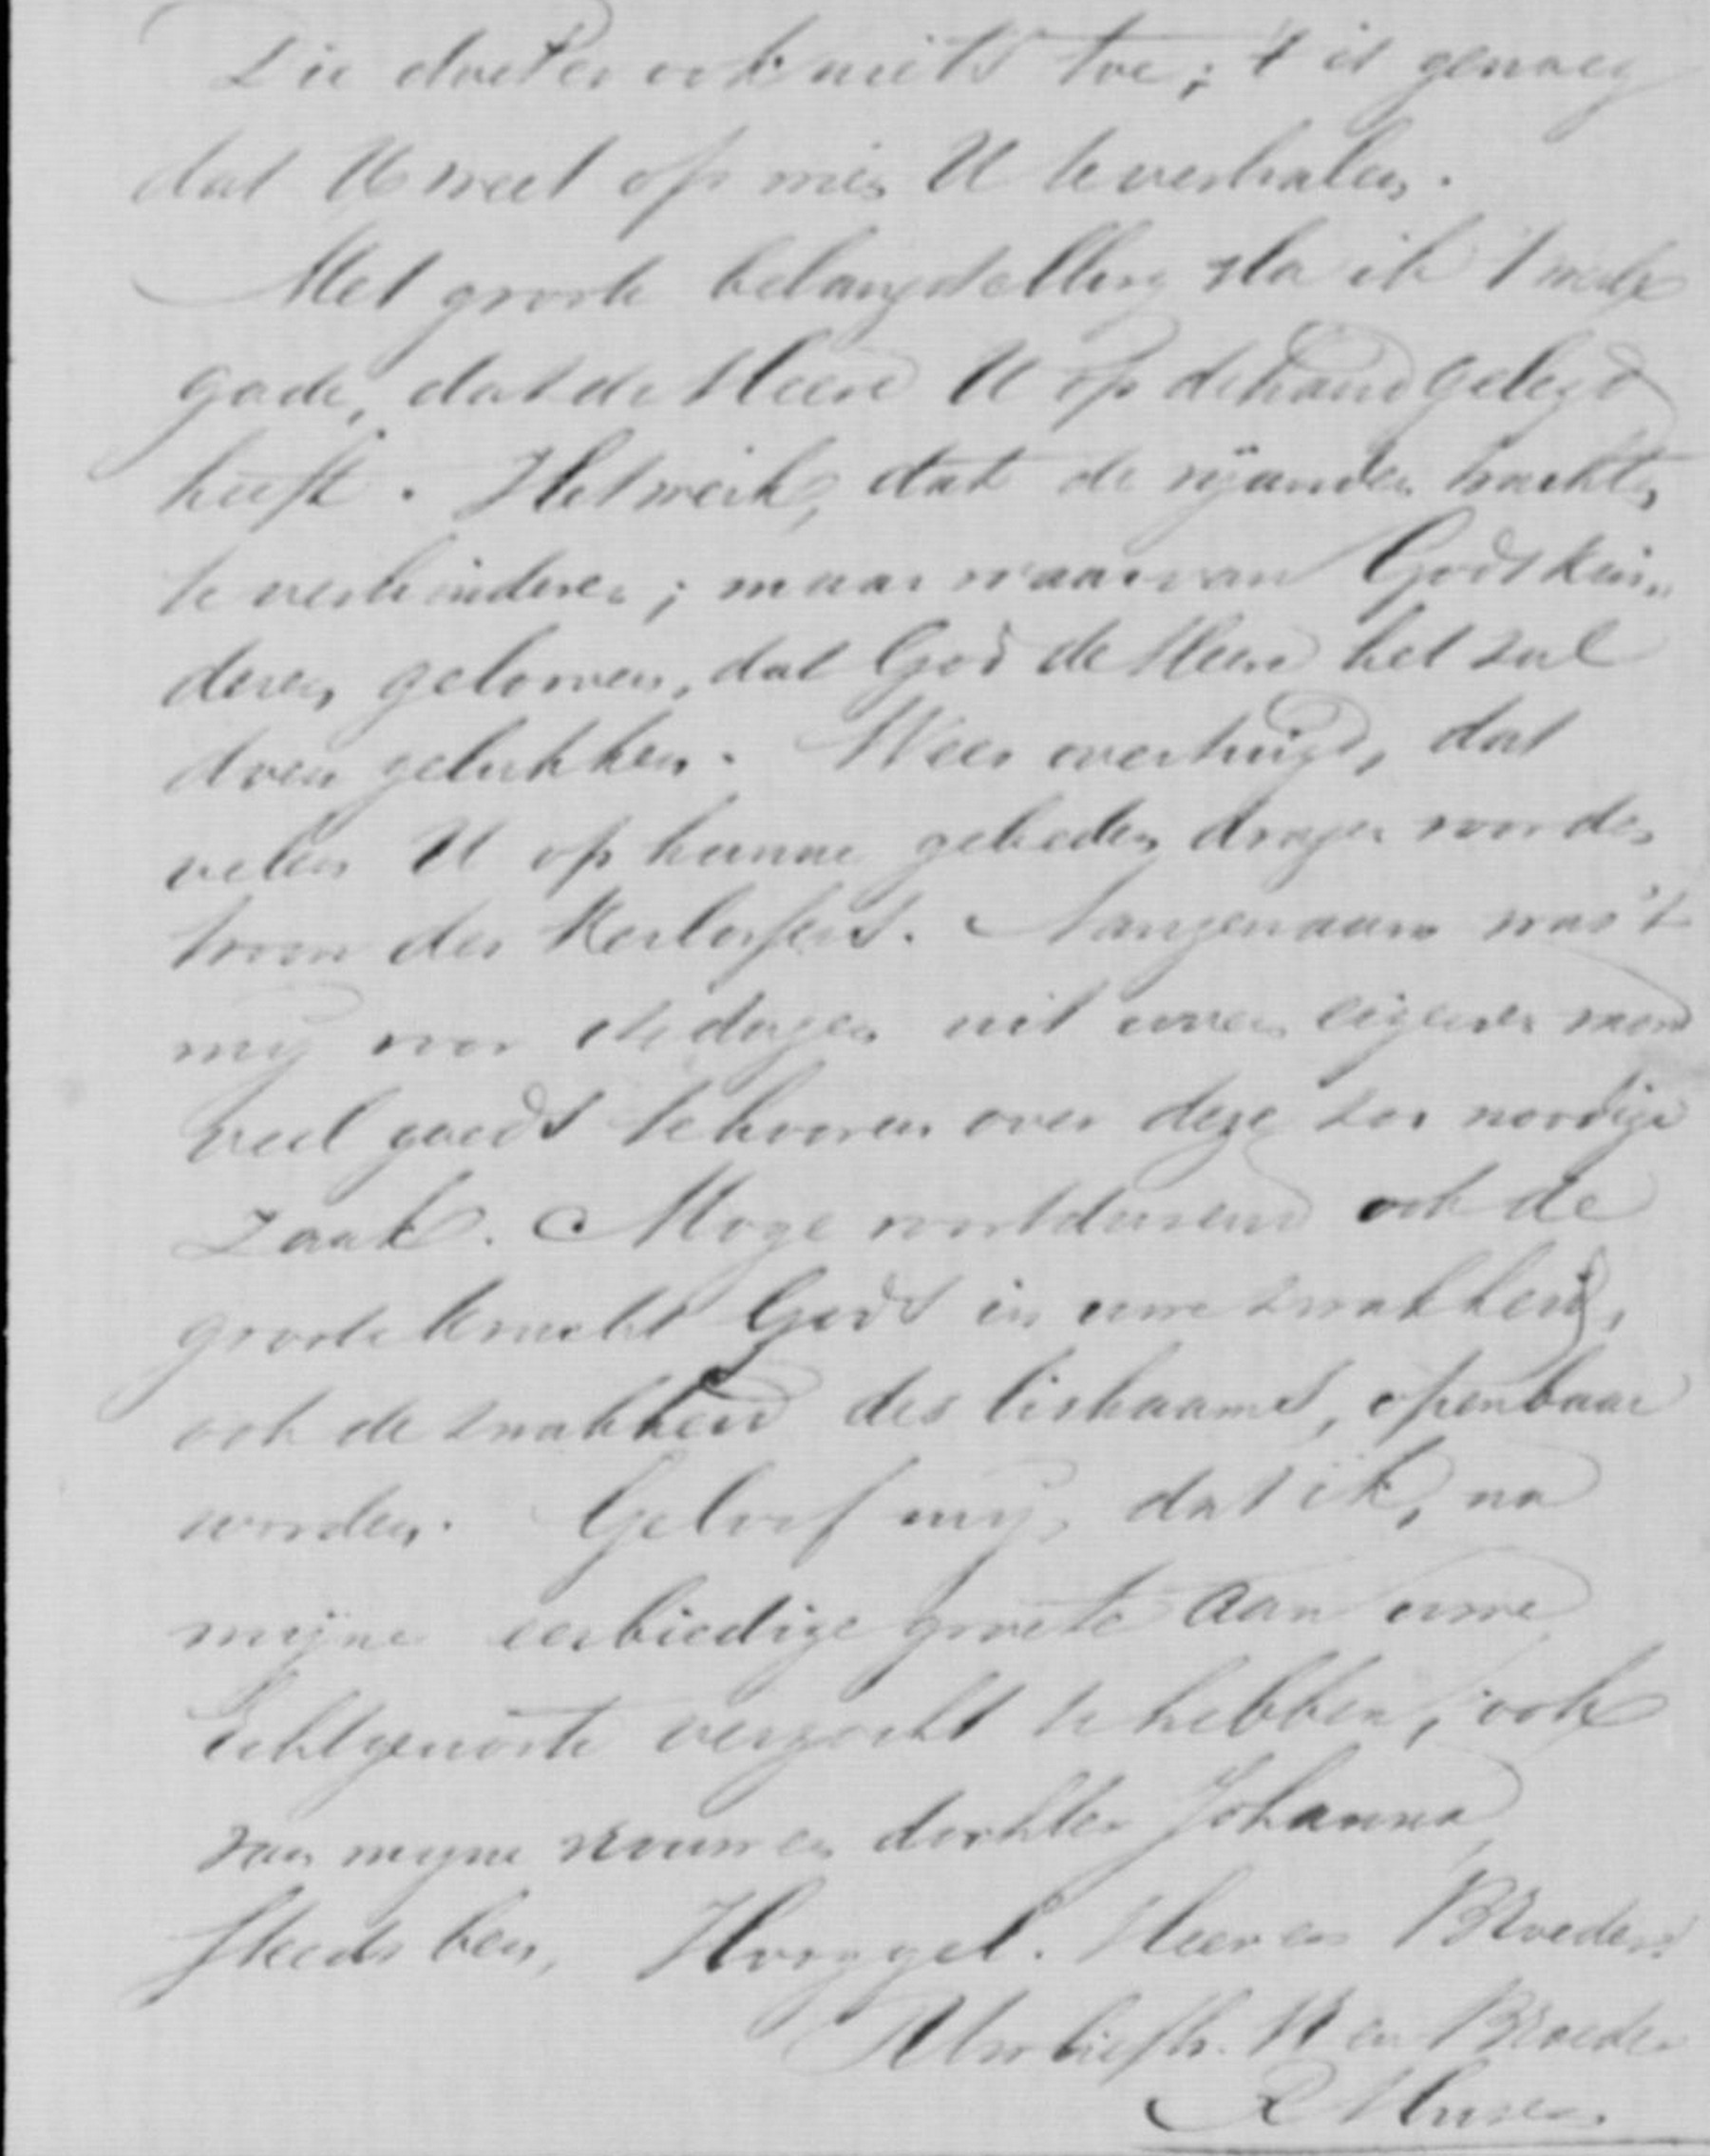 Die doet er ook niets toe; 't is genoeg
dat U weet op mij U te verhalen.
Met groote belangstelling sla ik 't werk
gade, dat de Heere U op de hand gelegd
heeft. Het werk, dat de vijanden trachten
te verhinderen; maar waarvan Gods kin„
deren gelooven, dat God de Heere het zal
doen gelukken. Wees overtuigd, dat
velen U op hunne gebeden dragen voor den
troon des Verlossers. Aangenaam was 't
mij voor dagen uit uwen eigenen mond
veel goeds te hooren over deze zoo noodige
zaak. Moge voortdurend ook de
groote kracht Gods in uwe zwakheid,
ook de zwakheid des lichaams, openbaar
worden. Geloof mij, dat ik, na
mijne eerbiedige groete aan uwe
Echtgenoote verzocht te hebben, ook
van mijne vrouw en dochter Johanna
steeds ben, Hooggel. Heer en Broeder!
Uw liefh. V en Broeder